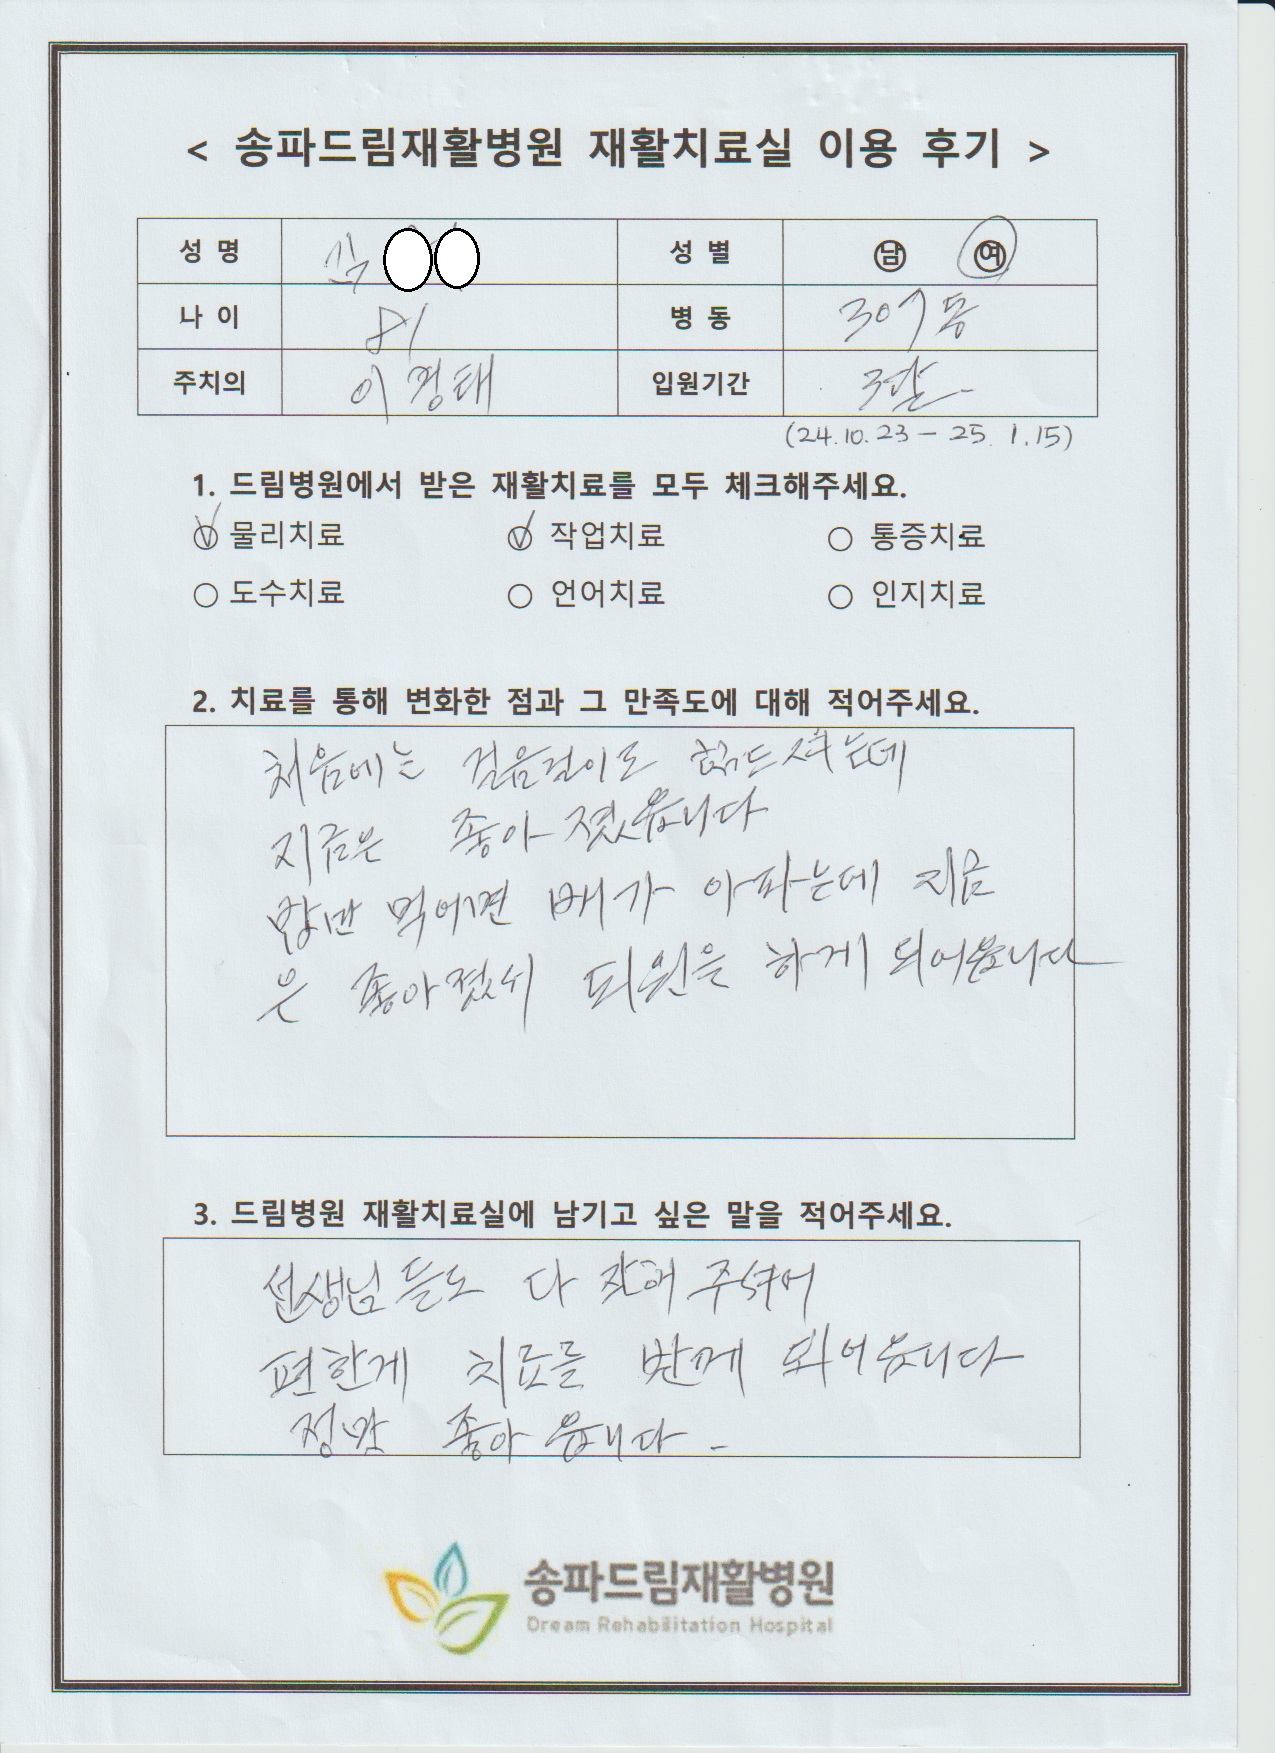 < 송파드림재활병원 재활치료실 이용 후기 >
성 명 성 별 남 여
나 이 81 병 동 307동
주치의 이경태 입원기간 3달
(24.10.23 - 25. 1.15)
1. 드림병원에서 받은 재활치료를 모두 체크해주세요.
물리치료 작업치료 통증치료
도수치료 언어치료 인지치료
2. 치료를 통해 변화한 점과 그 만족도에 대해 적어주세요.
처음에는 걸음걸이도 힘드셔는데
지금은 좋아 졌읍니다
밥만 먹어면 배가 아파는데 지금
은 좋아졌서 퇴원을 하게 되어읍니다
3. 드림병원 재활치료실에 남기고 싶은 말을 적어주세요.
선생님들도 다 잘해 주셔어
편한게 치료를 받게 되어읍니다
정말 좋아읍니다
송파드림재활병원
Dream Rehabilitation Hospital